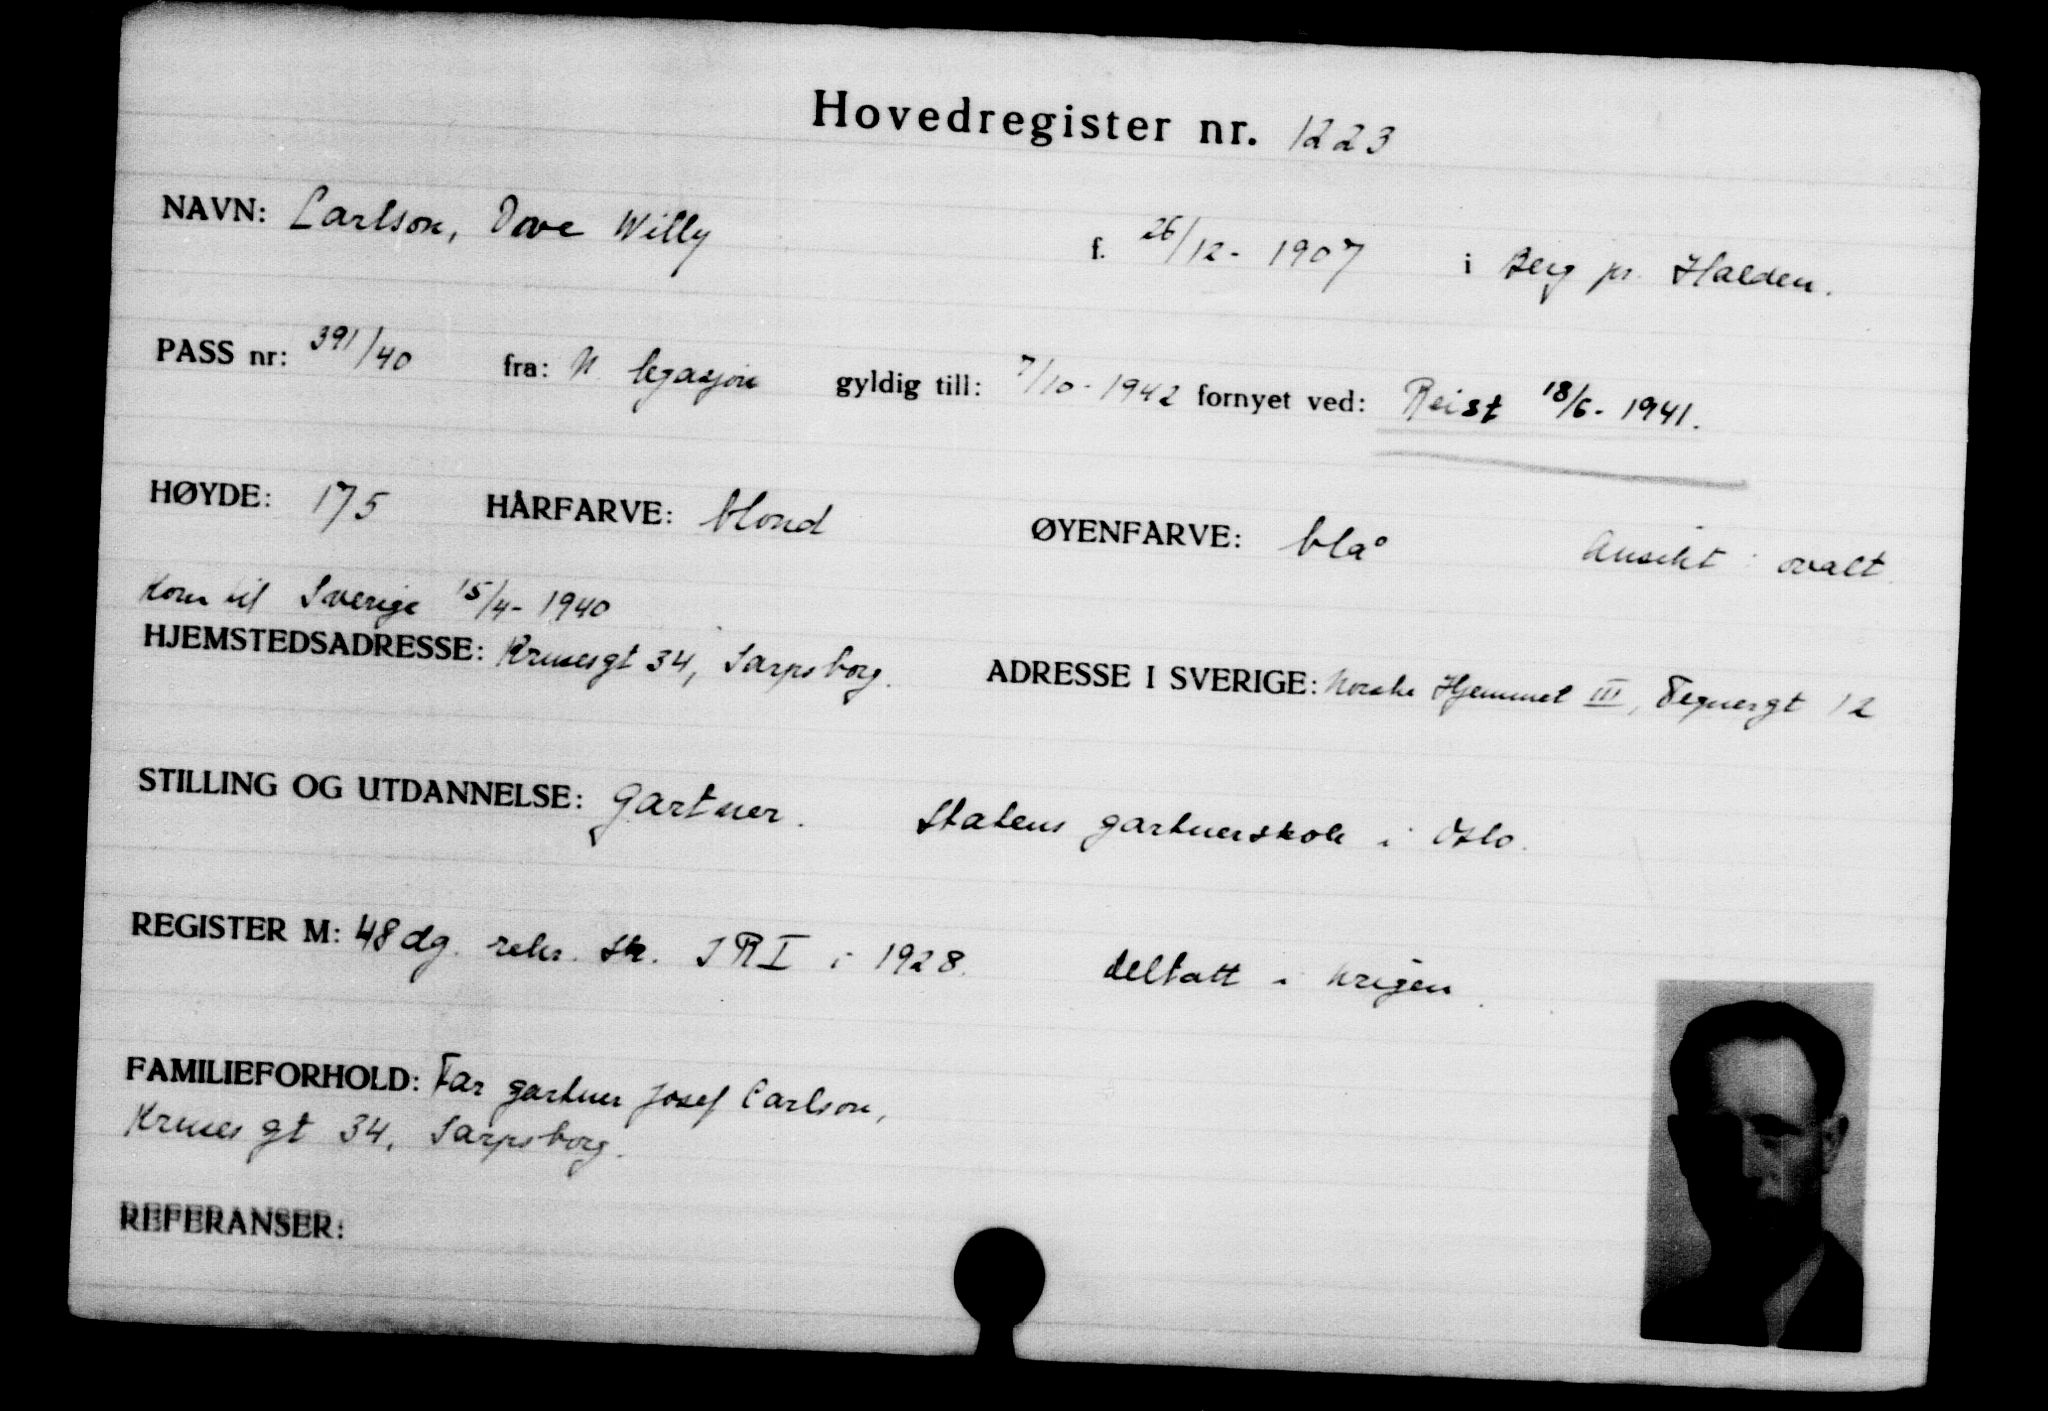 Hovedregister nr. 1223
NAVN: Carlson, Ove Willy f. 26/12- 1907 i Berg pr. Halden.
PASS nr: 391/40 fra: N. legasjon gyldig till: 7/10- 1942 fornyet ved: Reist 18/6- 1941.
HØYDE: 175 HÅRFARVE: blond ØYENFARVE: blå Ansikt: ovalt
Kom til Sverige 15/4- 1940
HJEMSTEDSADRESSE: Krusesgt 34, Sarpsborg. ADRESSE I SVERIGE: Norske Hjemmet III, Tegnergt 12
STILLING OG UTDANNELSE: Gartner. Statens gartnerskole i Oslo.
REGISTER M: 48 dg. rekr. sk. IR I i 1928. deltatt i krigen.
FAMILIEFORHOLD: Far gartner Josef Carlson,
Kruses gt 34, Sarpsborg.
REFERANSER: